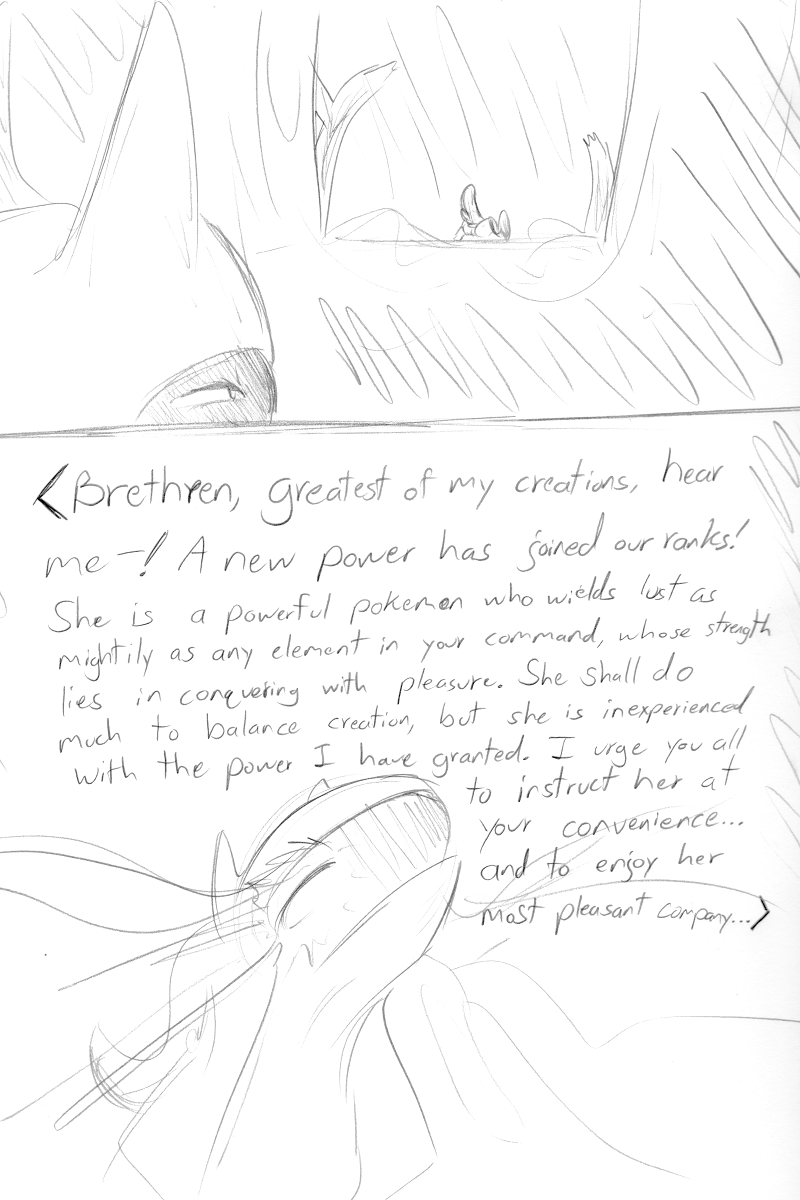 <Brethren, greatest of my creations, hear
me-! A new power has joined our ranks!
She is a powerful pokemon who wields lust as
mightily as any element in your command, whose strength
lies in conquering with pleasure. She shall do
much to balance creation, but she is inexperienced
with the power I have granted. I urge you all
to instruct her at
your convenience...
and to enjoy her
most pleasant company...>